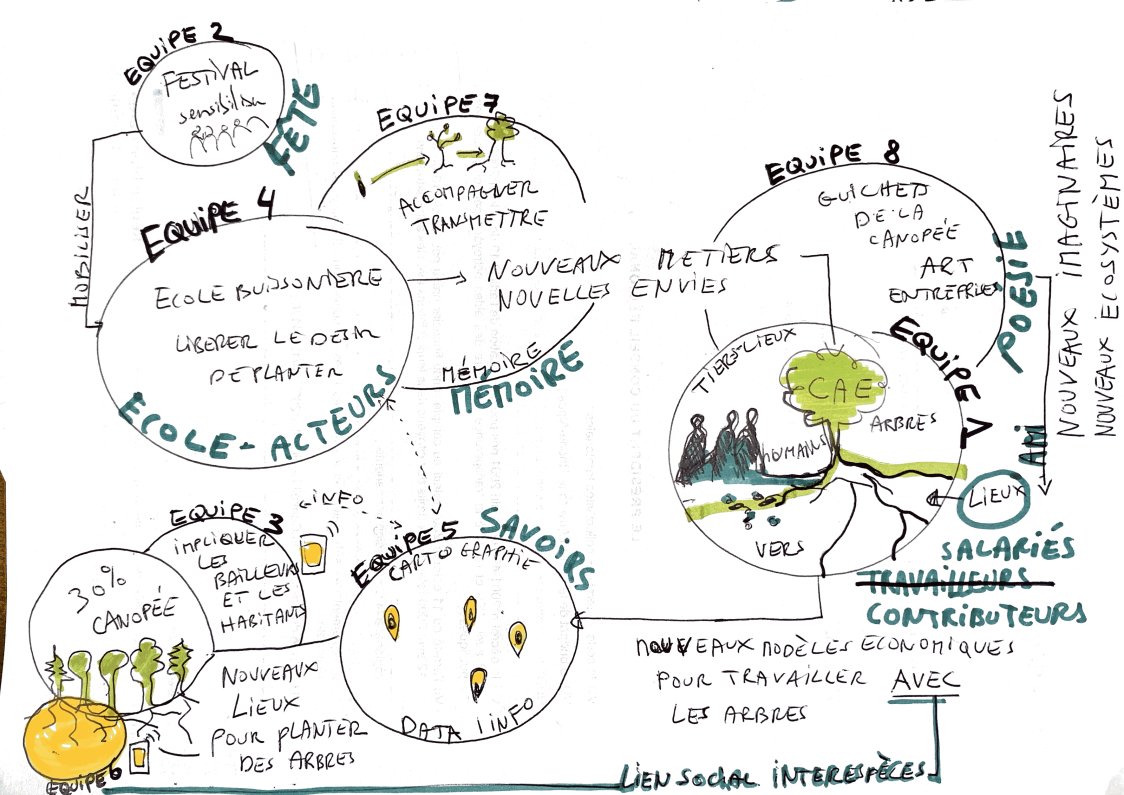 EQUIPE 2
FESTIVAL
FÊTE
MOBILISER
EQUIPE 7
ACCOMPAGNER
TRANSMETTRE
EQUIPE 4
ECOLE BUISSONIERE
LIBERER LE DESIR
DE PLANTER
ECOLE - ACTEURS
NOUVEAUX METIERS
NOUVELLES ENVIES
MÉMOIRE
MÉMOIRE
EQUIPE 8
GUICHETS
DE LA
CANOPÉE
ART
ENTREPRISES
POESIE
NOUVEAUX IMAGINAIRES
NOUVEAUX ECOSYSTÈMES
EQUIPE
TIERS-LIEUX
CAE
ARBRES
HUMAINS
VERS
AMI
LIEUX
SALARIÉS
TRAVAILLEURS
CONTRIBUTEURS
EQUIPE 3
IMPLIQUER
LES
BAILLEURS
ET LES
HABITANTS
INFO
30%
CANOPÉE
EQUIPE 6
NOUVEAUX
LIEUX
POUR PLANTER
DES ARBRES
EQUIPE 5
SAVOIRS
CARTOGRAPHIE
DATA INFO
NOUVEAUX MODÈLES ECONOMIQUES
POUR TRAVAILLER AVEC
LES ARBRES
LIEN SOCIAL INTERESPÈCES